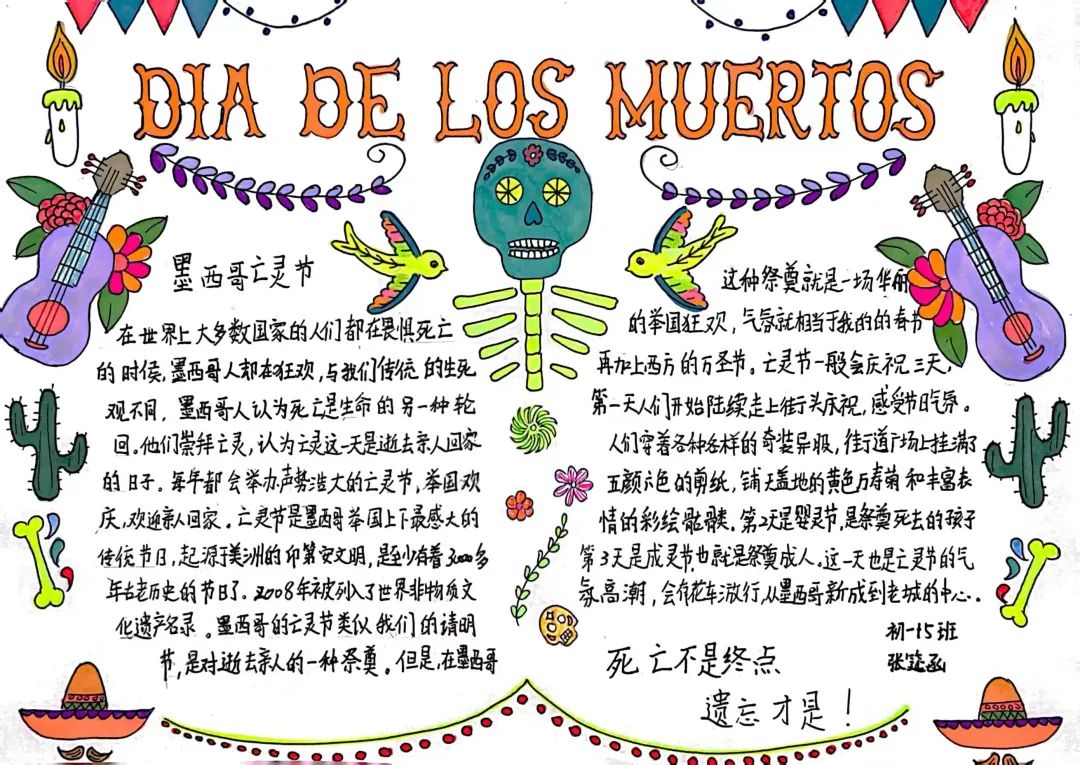 DIA DE LOS MUERTOS
墨西哥亡灵节
在世界上大多数国家的人们都在畏惧死亡
的时候,墨西哥人却在狂欢,与我们传统的生死
观不同,墨西哥人认为死亡是生命的另一种轮
回。他们崇拜亡灵,认为亡灵这一天是逝去亲人回家
的日子。每年都会举办声势浩大的亡灵节,举国欢
庆,欢迎亲人回家。亡灵节是墨西哥举国上下最盛大的
传统节日,起源于美洲的印第安文明,是至少有着3000多
年古老历史的节日了。2008年被列入了世界非物质文
化遗产名录。墨西哥的亡灵节类似我们的清明
节,是对逝去亲人的一种祭奠。但是,在墨西哥
这种祭奠就是一场华丽
的举国狂欢,气氛就相当于我的的春节
再加上西方的万圣节。亡灵节一般会庆祝三天,
第一天人们开始陆续走上街头庆祝,感受节日气氛。
人们穿着各种各样的奇装异服,街道广场上挂满了
五颜六色的剪纸,铺天盖地的黄色万寿菊和丰富表
情的彩绘骷髅。第2天是婴灵节,是祭奠死去的孩子
第3天是成灵节,也就是祭奠成人。这一天也是亡灵节的气
氛高潮,会有花车游行从墨西哥新成到老城的中心。
初一15班
张
死亡不是终点
遗忘才是!